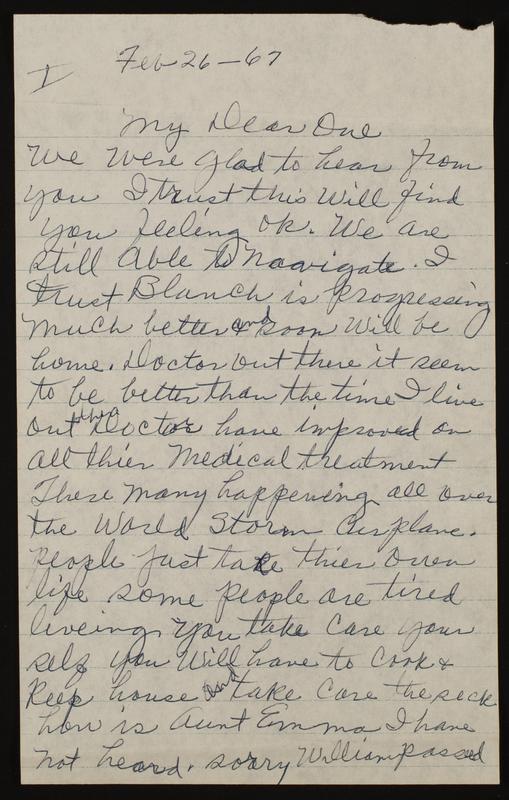 I
Feb 26-67
My Dear One
We Were glad to hear from
you I trust this Will find
you feeling ok. We are
still Able to Naavigate. I
trust Blanch is Progressing
Much better and soon Will be
home. Doctor out there it seem
to be better than the time I live
out there Doctor have improved on
all thier Medical treatment
These many happening all over
the World Storm Airplane.
People just take thier Owen
life some people are tired
liveing. You take Care your
self you Will have to Cook &
Keep house and take Care the sick
how is Aunt Emma I have
not heard. sorry William passed